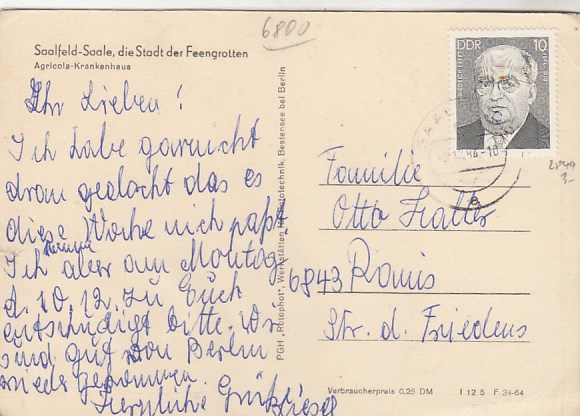 6800
Saalfeld-Saale, die Stadt der Feengrotten
Agricola-Krankenhaus
DDR 10
Ihr Lieben!
Ich habe garnicht
dran gedacht das es
diese Woche nich paßt
Ich komme aber am Montag
d. 10.12. zu Euch
entschuldigt bitte. Wir
sind gut von Berlin
wieder gekommen.
Herzliche Grüße
PGH „Rotophot“, Werkstätten für Fototechnik, Bestensee bei Berlin
Familie
Otto
6843 Ranis
Str. d. Friedens
Verbraucherpreis 0,25 DM I 12 5 F 34-64